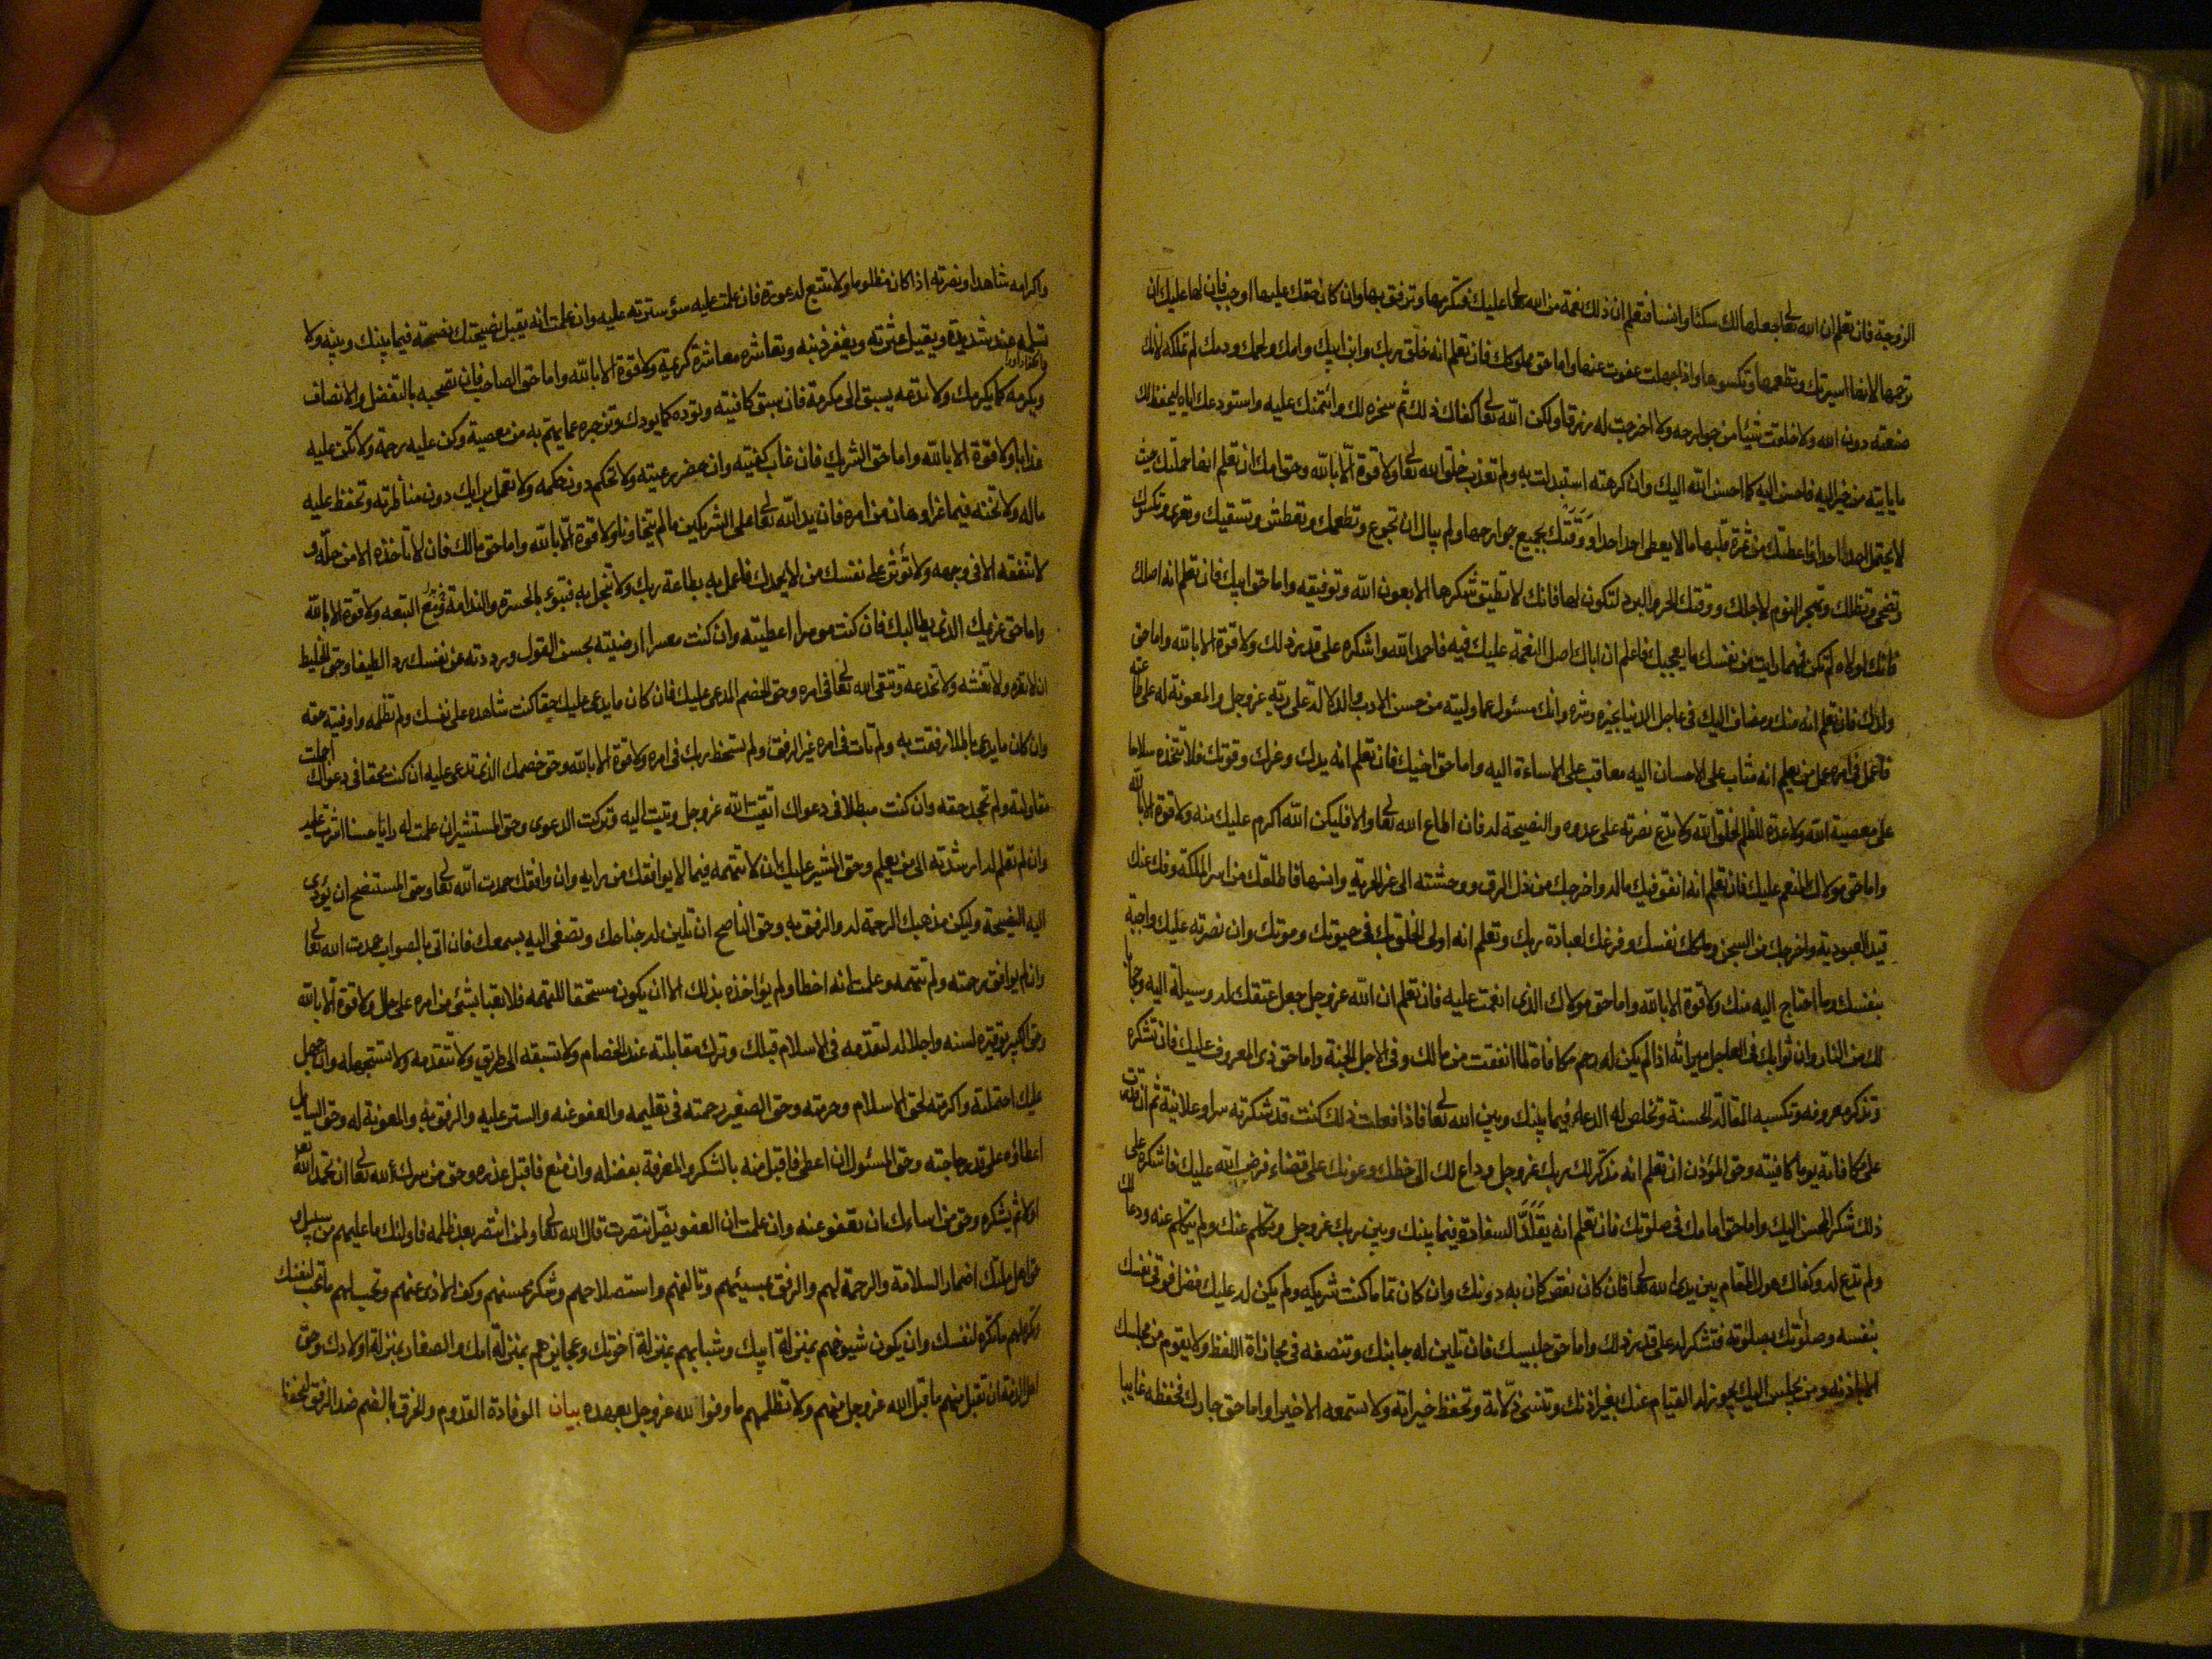 الزوجة فان تعلم ان الله تعا جعلها لك سكنا وانسا فتعلم ان ذلك نعمة من الله تعا عليك فتكرمها وترفق بها وان كان حقك عليها اوجب فان لها عليك ان
ترحمها لانها اسيرتك وتطعمها وتكسوها واذا جهلت عفوت عنها واما حق مملوكك فان تعلم انه خلق ربك وابن ابيك وامك ولحمك ودمك لم تملكه لانك
صنعته دون الله ولا خلقت شيئا من جوارحه ولا اخرجت له رزقا ولكن الله تعا كفاك ذلك ثم سخره لك وائتمنك عليه واستودعك اياه ليحفظ لك
ما ياتيه من خير اليه فاحسن اليه كما احسن الله اليك وان كرهته استبدلت به ولم تعذب خلق الله تعا ولا قوة الا بالله وحق امك ان تعلم انها حملتك حيث
لا يحتمل احد احدا واعطتك من ثمرة قلبها ما لا يعطى احد احدا ووقتك بجميع جوارحها ولم يبال ان تجوع وتطعمك وتعطش وتسقيك وتعرى وتكسوك
وتضحى وتظلك وتهجر النوم لاجلك ووقتك الحر والبرد لتكون لها فانك لا تطيق شكرها الا بعون الله وتوفيقه واما حق ابيك فان تعلم انه اصلك
فانك لولاه لم تكن فمهما رايت من نفسك ما يعجبك فاعلم ان اباك اصل النعمة عليك فيه فاحمد الله واشكره على قدر ذلك ولا قوة الا بالله واما حق
ولدك فان تعلم انه منك ومضاف اليك في عاجل الدنيا بخيره وشره وانك مسئول عما وليته من حسن الادب والدلالة على ربه عز وجل والمعونة له على طاعته
فاعمل في امره عمل من يعلم انه مثاب على الاحسان اليه معاقب على الاساءة اليه واما حق اخيك فان تعلم انه يدك وعزك وقوتك فلا تتخذه سلاحا
على معصية الله ولا عدة للظلم لخلق الله ولا تدع نصرته على عدوه والنصيحة له فان اطاع الله تعا والا فليكن الله اكرم عليك منه ولا قوة الا بالله
واما حق مولاك المنعم عليك فان تعلم انه انفق فيك ماله واخرجك من ذل الرق ووحشته الى عز الحرية وانسها فاطلقك من اسر الملكة وفك عنك
قيد العبودية واخرجك من السجن وملكك نفسك وفرغك لعبادة ربك وتعلم انه اولى الخلق بك في حيوتك وموتك وان نصرته عليك واجبة
بنفسك وما احتاج اليه منك ولا قوة الا بالله واما حق مولاك الذى انعمت عليه فان تعلم ان الله عز وجل جعل عتقك له وسيلة اليه وحجابا
لك من النار وان ثوابك في العاجل ميراثه اذا لم يكن له رحم مكافاة لما انفقت من مالك وفي الاجل الجنة واما حق ذى المعروف عليك فان تشكره
وتذكر معروفه وتكسبه المقالة الحسنة وتخلص له الدعاء فيما بينك وبين الله تعا فاذا فعلت ذلك كنت قد شكرته سرا وعلانية ثم ان قدرت
على مكافاته يوما كافيته وحق المؤذن ان تعلم انه مذكر لك ربك عز وجل وداع لك الى حظك وعونك على قضاء فرض الله عليك فاشكره على
ذلك شكر المحسن اليك واما حق امامك في صلوتك فان تعلم انه يقلد السفارة فيما بينك وبين ربك عز وجل وتكلم عنك ولم تتكلم عنه ودعا لك
ولم تدع له وكفاك هول المقام بين يدى الله تعا فان كان نقص كان به دونك وان كان تماما كنت شريكه ولم يكن له عليك فضل فوقى نفسك
بنفسه وصلوتك بصلوته فتشكر له على قدر ذلك واما حق جليسك فان تلين له جانبك وتنصفه في مجازاة اللفظ ولا يقوم من مجلسك
الا باذنه ومن يجلس اليك يجوز له القيام عنك بغير اذنك وتنسى زلاته وتحفظ خيراته ولا تسمعه الا خيرا واما حق جارك فحفظه غايبا
واكرامه شاهدا ونصرته اذا كان مظلوما ولا تتبع له عورة فان علمت عليه سوء سترته عليه وان علمت انه يقبل نصيحتك نصحته فيما بينك وبينه ولا
تسلمه عند شديدة ويقيل عثرته ويغفر ذنبه وتعاشره معاشرة كريمة ولا قوة الا بالله واما حق الصاحب فان تصحبه بالتفضل والانصاف
وتكرمه كما يكرمك ولا تدعه يسبق الى مكرمة فان سبق كافيته وتوده كما يودك وتزجره عما يهم به من معصية وكن عليه رحمة ولا تكن عليه
عذابا ولا قوة الا بالله واما حق الشريك فان غاب كفيته وان حضر رعيته ولا تحكم دون حكمه ولا تعمل برايك دون مناظرته وتحفظ عليه
ماله ولا تخنه فيما عز او هان من امره فان يد الله تعا على الشريكين ما لم يتخاونا ولا قوة الا بالله واما حق مالك فان لا تاخذه الا من حله و
لا تنفقه الا في وجهه ولا تؤثر على نفسك من لا يحمدك فاعمل به بطاعة ربك ولا تبخل به فتبوء بالحسرة والندامة مع التبعه ولا قوة الا بالله
واما حق غريمك الذى يطالبك فان كنت موسرا اعطيته وان كنت معسرا ارضيته بحسن القول ورددته عن نفسك ردا لطيفا وحق الخليط
ان لا تغره ولا تغشه ولا تخدعه وتتقى الله تعا في امره وحق الخصم المدعى عليك فان كان ما يدعى عليك حقا كنت شاهده على نفسك ولم تظلمه واوفيته حقه
وان كان ما يدعى باطلا رفقت به ولم تات في امره غير الرفق ولم تسخط ربك في امره ولا قوة الا بالله وحق خصمك الذى تدعى عليه ان كنت محقا في دعواك اجملت
مقاولته ولم تجحد حقه وان كنت مبطلا في دعواك اتقيت الله عز وجل وتبت اليه وتركت الدعوى وحق المستشير ان علمت له رايا حسنا اشرت عليه
وان لم تعلم له ارشدته الى من يعلم وحق المشير عليك ان لا تتهمه فيما لا يوافقك من رايه وان وافقك حمدت الله تعا وحق المستنصح ان يؤدى
اليه النصيحة وليكن مذهبك الرحمة له والرفق به وحق الناصح ان تلين له جناحك وتصغى اليه بسمعك فان اتى بالصواب حمدت الله تعا
وان لم يوافق رحمته ولم تتهمه وعلمت انه اخطا ولم يؤاخذه بذلك الا ان يكون مستحقا للتهمه فلا تعبا بشئ من امره على حال ولا قوة الا بالله
وحق الكبير توقيره لسنه واجلاله لتقدمه في الاسلام قبلك وترك مقابلته عند الخصام ولا تسبقه الى طريق ولا تتقدمه ولا تستجهله وان جهل
عليك احتملته واكرمته لحق الاسلام وحرمته وحق الصغير رحمته في تعليمه والعفو عنه والستر عليه والرفق به والمعونة له وحق السايل
اعطاؤه على قدر حاجته وحق المسئول ان اعطى فاقبل منه بالشكر والمعرفة بفضله وان منع فاقبل عذره وحق من سرك لله تعا ان تحمد الله
اولا ثم يشكره وحق من اساءك ان تعفو عنه وان علمت ان العفو يضر انتصرت قال الله تعا ولمن انتصر بعد ظلمه فاولئك ما عليهم من سبيل و
حق اهل ملتك اضمار السلامة والرحمة لهم والرفق بمسيئهم وتالفهم واستصلاحهم وشكر محسنهم وكف الاذى عنهم وتحب لهم ما تحب لنفسك
وتكره لهم ما تكره لنفسك وان يكون شيوخهم بمنزلة ابيك وشبابهم بمنزلة اخوتك وعجايزهم بمنزلة امك والصغار بمنزلة اولادك وحق
اهل الذمة ان تقبل منهم ما قبل الله عز وجل منهم ولا تظلمهم ما وفوا لله عز وجل بعهده بيان الوفادة القدوم والخرق بالضم ضد الرفق